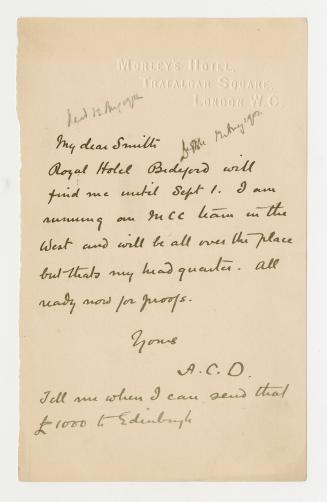 MORLEY'S HOTEL,
TRAFALGAR SQUARE,
LONDON W.C.
My dear Smith
Royal Hotel Bideford will
find me until Sept 1. I am
running an MCC team in the
West and will be all over the place
but thats my head quarter. All
ready now for proofs.
Yours
A.C.D.
Tell me when I can send that
£1000 to Edinburgh